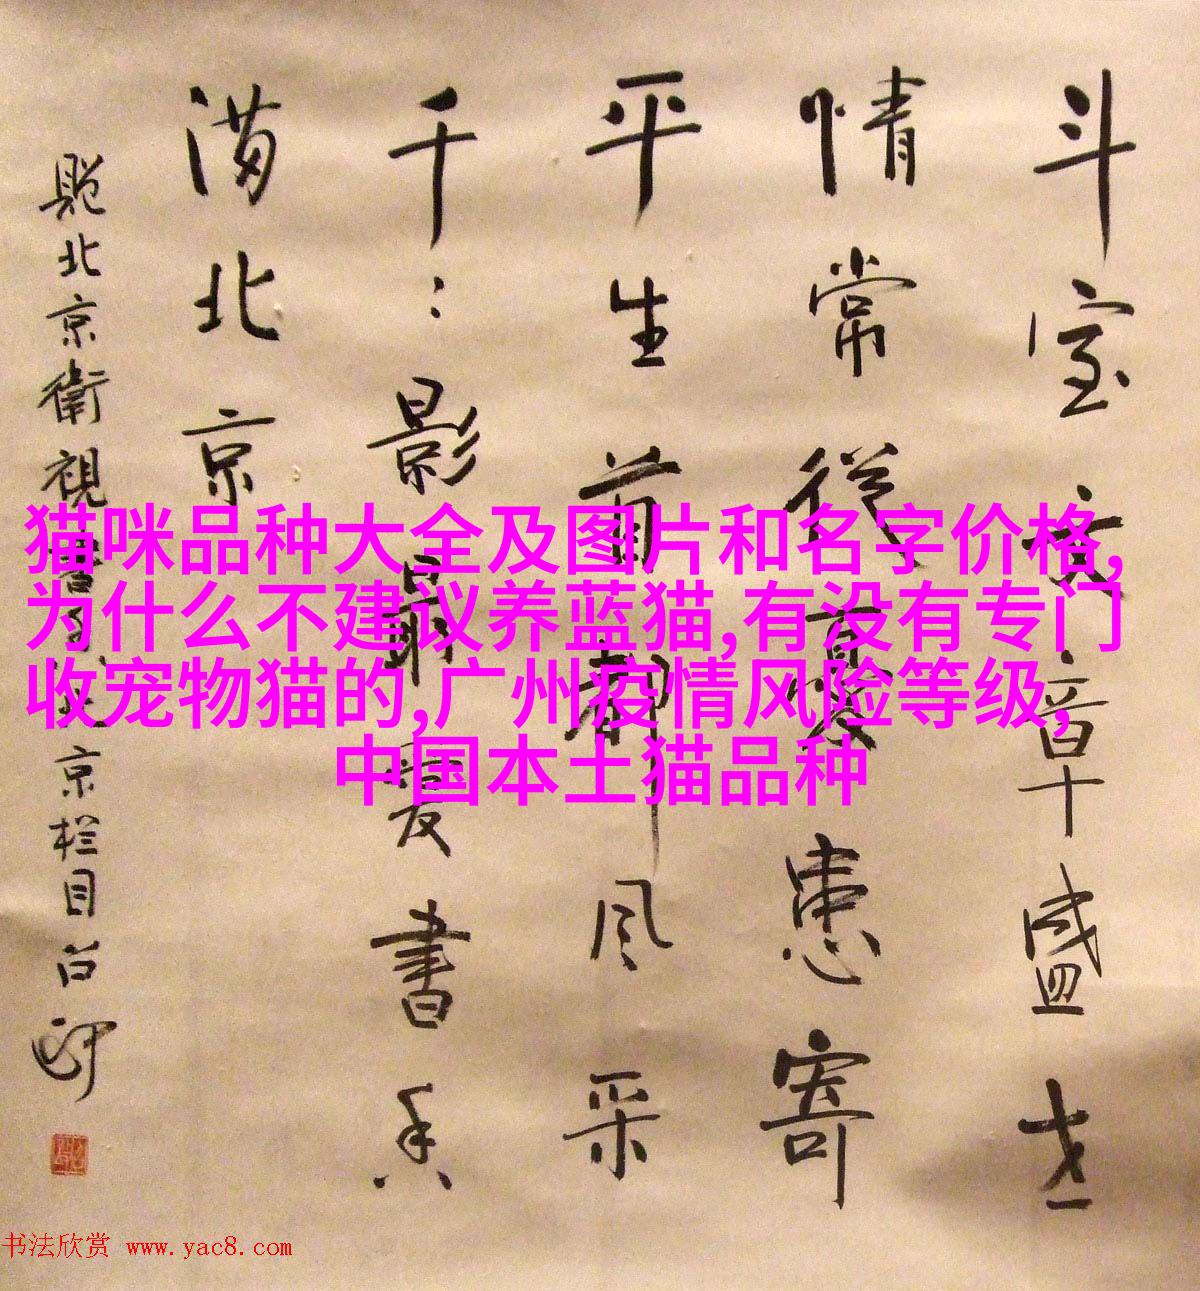 斗室文章盛世
情常從憂患寄
平生首都风采
千〻影最愛書香
满北京
題北京衛視書香北京栏目
猫咪品种大全及图片和名字价格,
为什么不建议养蓝猫,有没有专门
收宠物猫的,广州疫情风险等级,
中国本土猫品种
书法欣赏 www.yac8.com